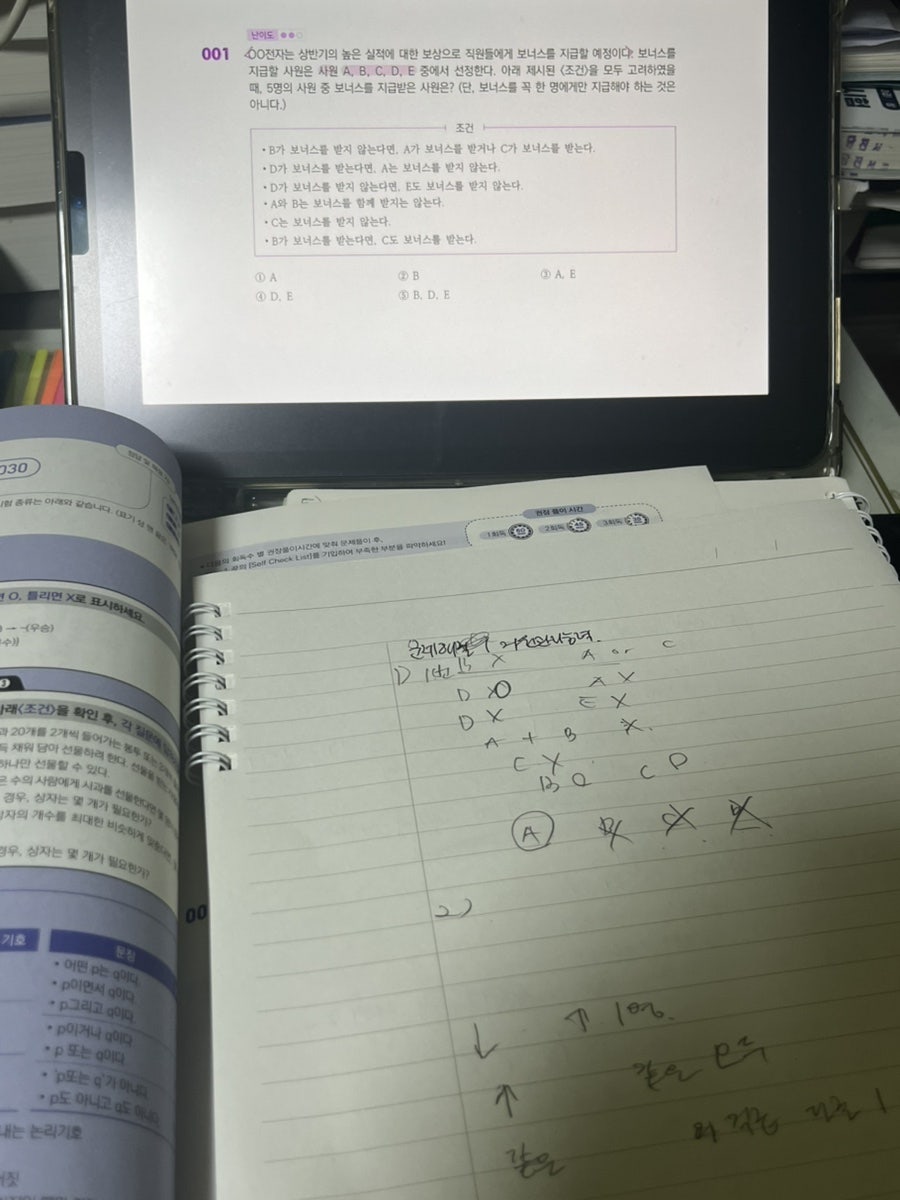 난이도
001 OO전자는 상반기의 높은 실적에 대한 보상으로 직원들에게 보너스를 지급할 예정이다. 보너스를
지급할 사원은 사원 A, B, C, D, E 중에서 선정한다. 아래 제시된 〈조건〉을 모두 고려하였을
때, 5명의 사원 중 보너스를 지급받은 사원은? (단, 보너스를 꼭 한 명에게만 지급해야 하는 것은
아니다.)
조건
• B가 보너스를 받지 않는다면, A가 보너스를 받거나 C가 보너스를 받는다.
• D가 보너스를 받는다면, A는 보너스를 받지 않는다.
• D가 보너스를 받지 않는다면, E도 보너스를 받지 않는다.
• A와 B는 보너스를 함께 받지는 않는다.
• C는 보너스를 받지 않는다.
• B가 보너스를 받는다면, C도 보너스를 받는다.
① A ② B ③ A, E
④ D, E ⑤ B, D, E
030
시험 종류는 아래와 같습니다.
권장 풀이 시간
1회독 2회독 3회독
회독수 별 권장풀이시간에 맞춰 문제풀이 후,
[Self Check List]를 기입하여 부족한 부분을 파악하세요!
면 O, 틀리면 X로 표시하세요.
→ ~(우승)
아래 〈조건〉을 확인 후, 각 질문에
과 20개를 2개씩 들어가는 봉투 또는
득 채워 담아 선물하려 한다. 선물을
하나만 선물할 수 있다.
은 수의 사람에게 사과를 선물한다면
경우, 상자는 몇 개가 필요한가?
상자의 개수를 최대한 비슷하게
경우, 상자는 몇 개가 필요한가?
1) 1번 B X A or C
D O A X
D X E X
A + B X.
C X
B O C O
A
2)
00
기호 문장
• 어떤 p는 q이다.
• p이면서 q이다.
• p그리고 q이다.
• p이거나 q이다
• p 또는 q이다
• 'p또는 q'가 아니다.
• p도 아니고 q도 아니다.
내는 논리기호
↓ ↑ 1명.
↑ 같은
같은